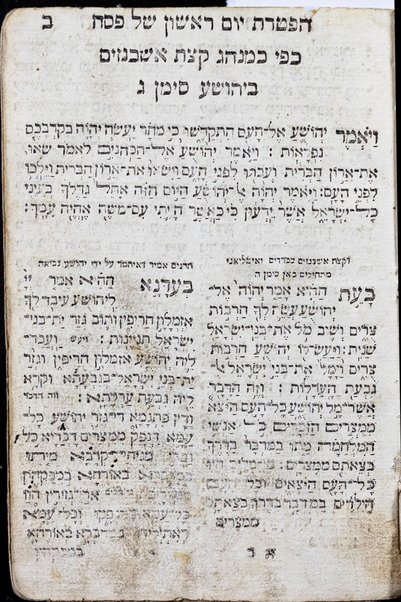 הפטרת יום ראשון של פסח ב
כפי כמנהג קצת אשכנזים
ביהושע סימן ג
וַיֹּאמֶר יהושע אל העם התקדשו כי מחר יעשה יהוה בקרבכם
נפלאות: ויאמר יהושע אל הכהנים לאמר שאו
את ארון הברית ועברו לפני העם וישאו את ארון הברית וילכו
לפני העם: ויאמר יהוה אל יהושע היום הזה אחל גדלך בעיני
כל ישראל אשר ידעון כי כאשר הייתי עם משה אהיה עמך:
וקצת אשכנזים ספרדים ואיטליאני
מתחילים כאן סימן ה
בָּעֵת ההיא אמר יהוה אל
יהושע עשה לך חרבות
צרים ושוב מל את בני ישראל
שנית: ויעש לו יהושע חרבות
צרים וימל את בני ישראל אל
גבעת הערלות: וזה הדבר
אשר מל יהושע כל העם היצא
ממצרים הזכרים כל אנשי
המלחמה מתו במדבר בדרך
בצאתם ממצרים: כי מלים היו
כל העם היצאים וכל העם
הילדים במדבר בדרך בצאתם
ממצרים
תרגום
על ידי יהושע נביאה
בעדנא ההיא אמר יי
ליהושע עיבד לך
אזמלון חריפין ותוב גזר ית בני
ישראל תנינות: ועבד
ליה יהושע אזמלון חריפין וגזר
ית בני ישראל בגבעתא וקרא
יתה גבעת ערלתא:
ודין פתגמא די גזר יהושע כל
עמא דנפק ממצרים דכריא כל
מיתו
במדברא באורחא במפקהון
ממצרים ארי גזירין הוו
כל עמא דנפקו וכל עמא
במדברא באורחא
במפקהון
א ב